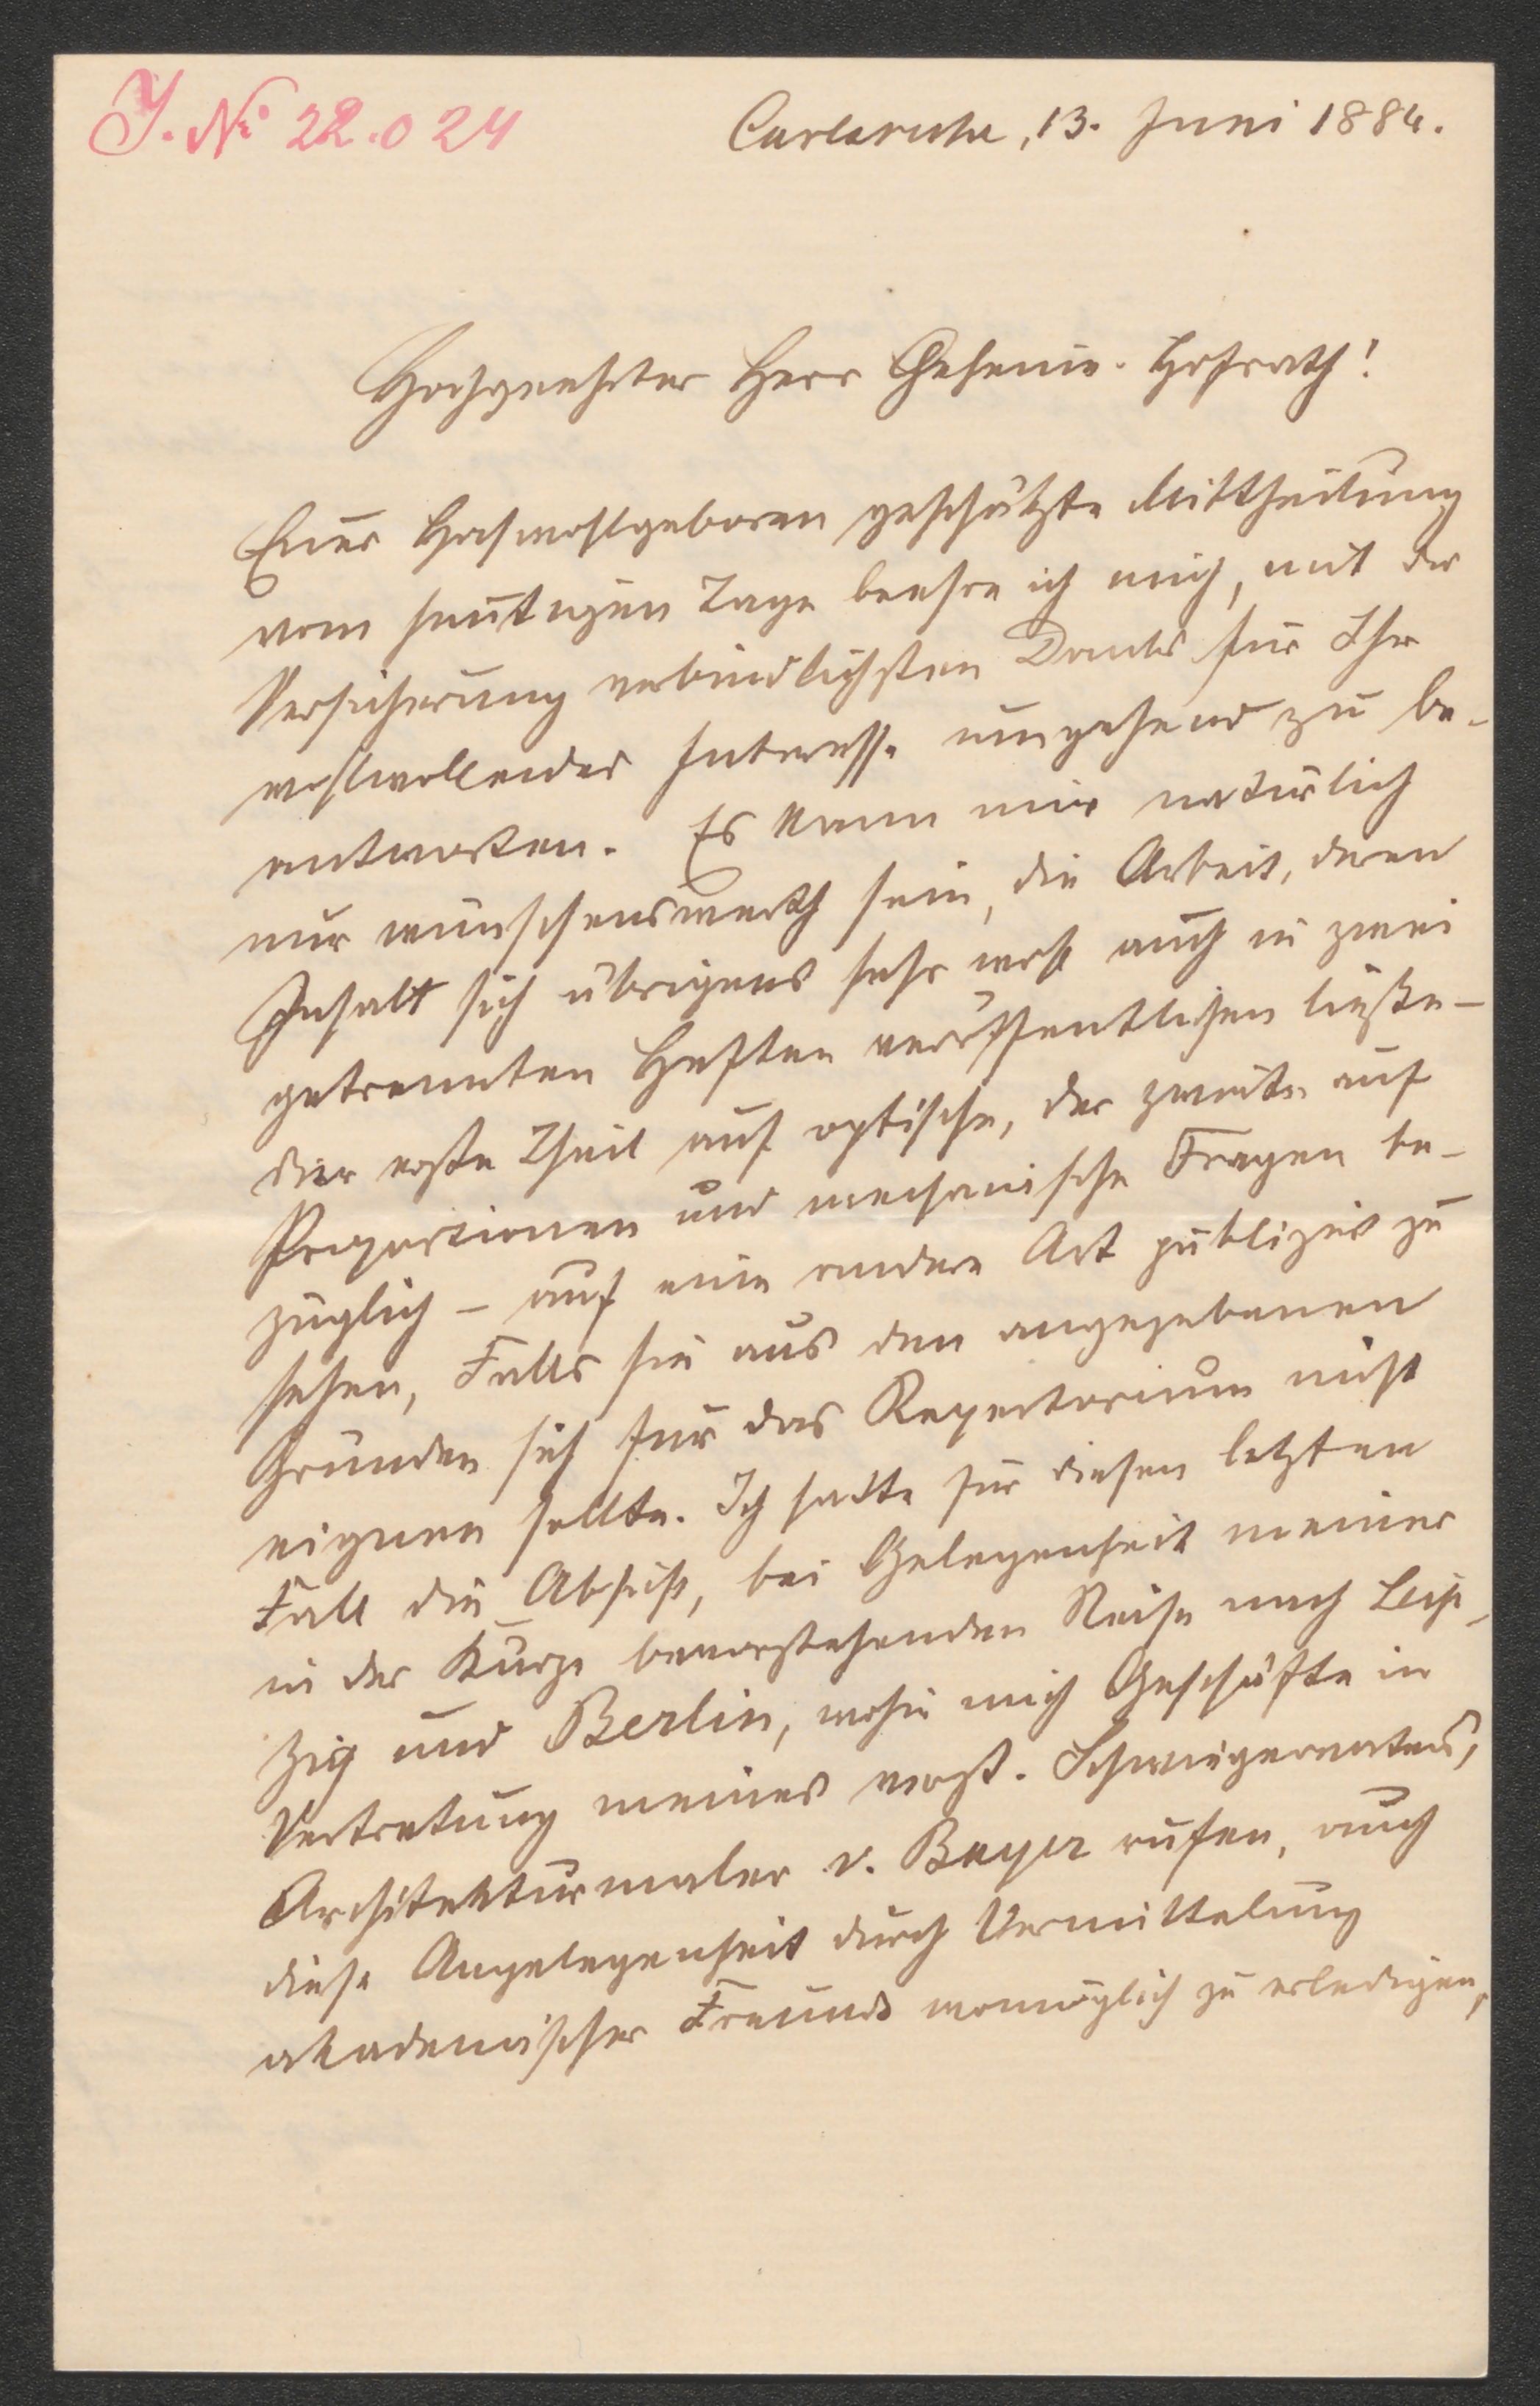 J. No 22.024
Carlsruhe, 13. Juni 1884.
Hochgeehrter Herr Geheim. Hofrath!
Euer Hochwohlgeboren geschätzte Mittheilung
vom heutigen Tage beehre ich mich, mit der
Versicherung verbindlichsten Danks für Ihr
wohlwollendes Interesse umgehend zu be-
antworten. Es kann mir natürlich
nur wünschenswerth sein, die Arbeit, deren
Inhalt sich übrigens sehr wohl auch in zwei
getrennten Heften veröffentlichen ließe –
der erste Theil auf optische, der zweite auf
Proportionen und mechanische Fragen be-
züglich – auf eine andere Art publizirt zu
sehen, Falls sie aus den angegebenen
Gründen sich für das Repertorium nicht
eignen sollte. Ich hatte für diesen letzten
Fall die Absicht, bei Gelegenheit meiner
in der Kürze bevorstehenden Reise nach Leip-
zig und Berlin, wohin mich Geschäfte in
Vertretung meines verst. Schwiegervaters,
Architekturmaler v. Bayer rufen, auch
diese Angelegenheit durch Vermittelung
akademischer Freunde womöglich zu erledigen,